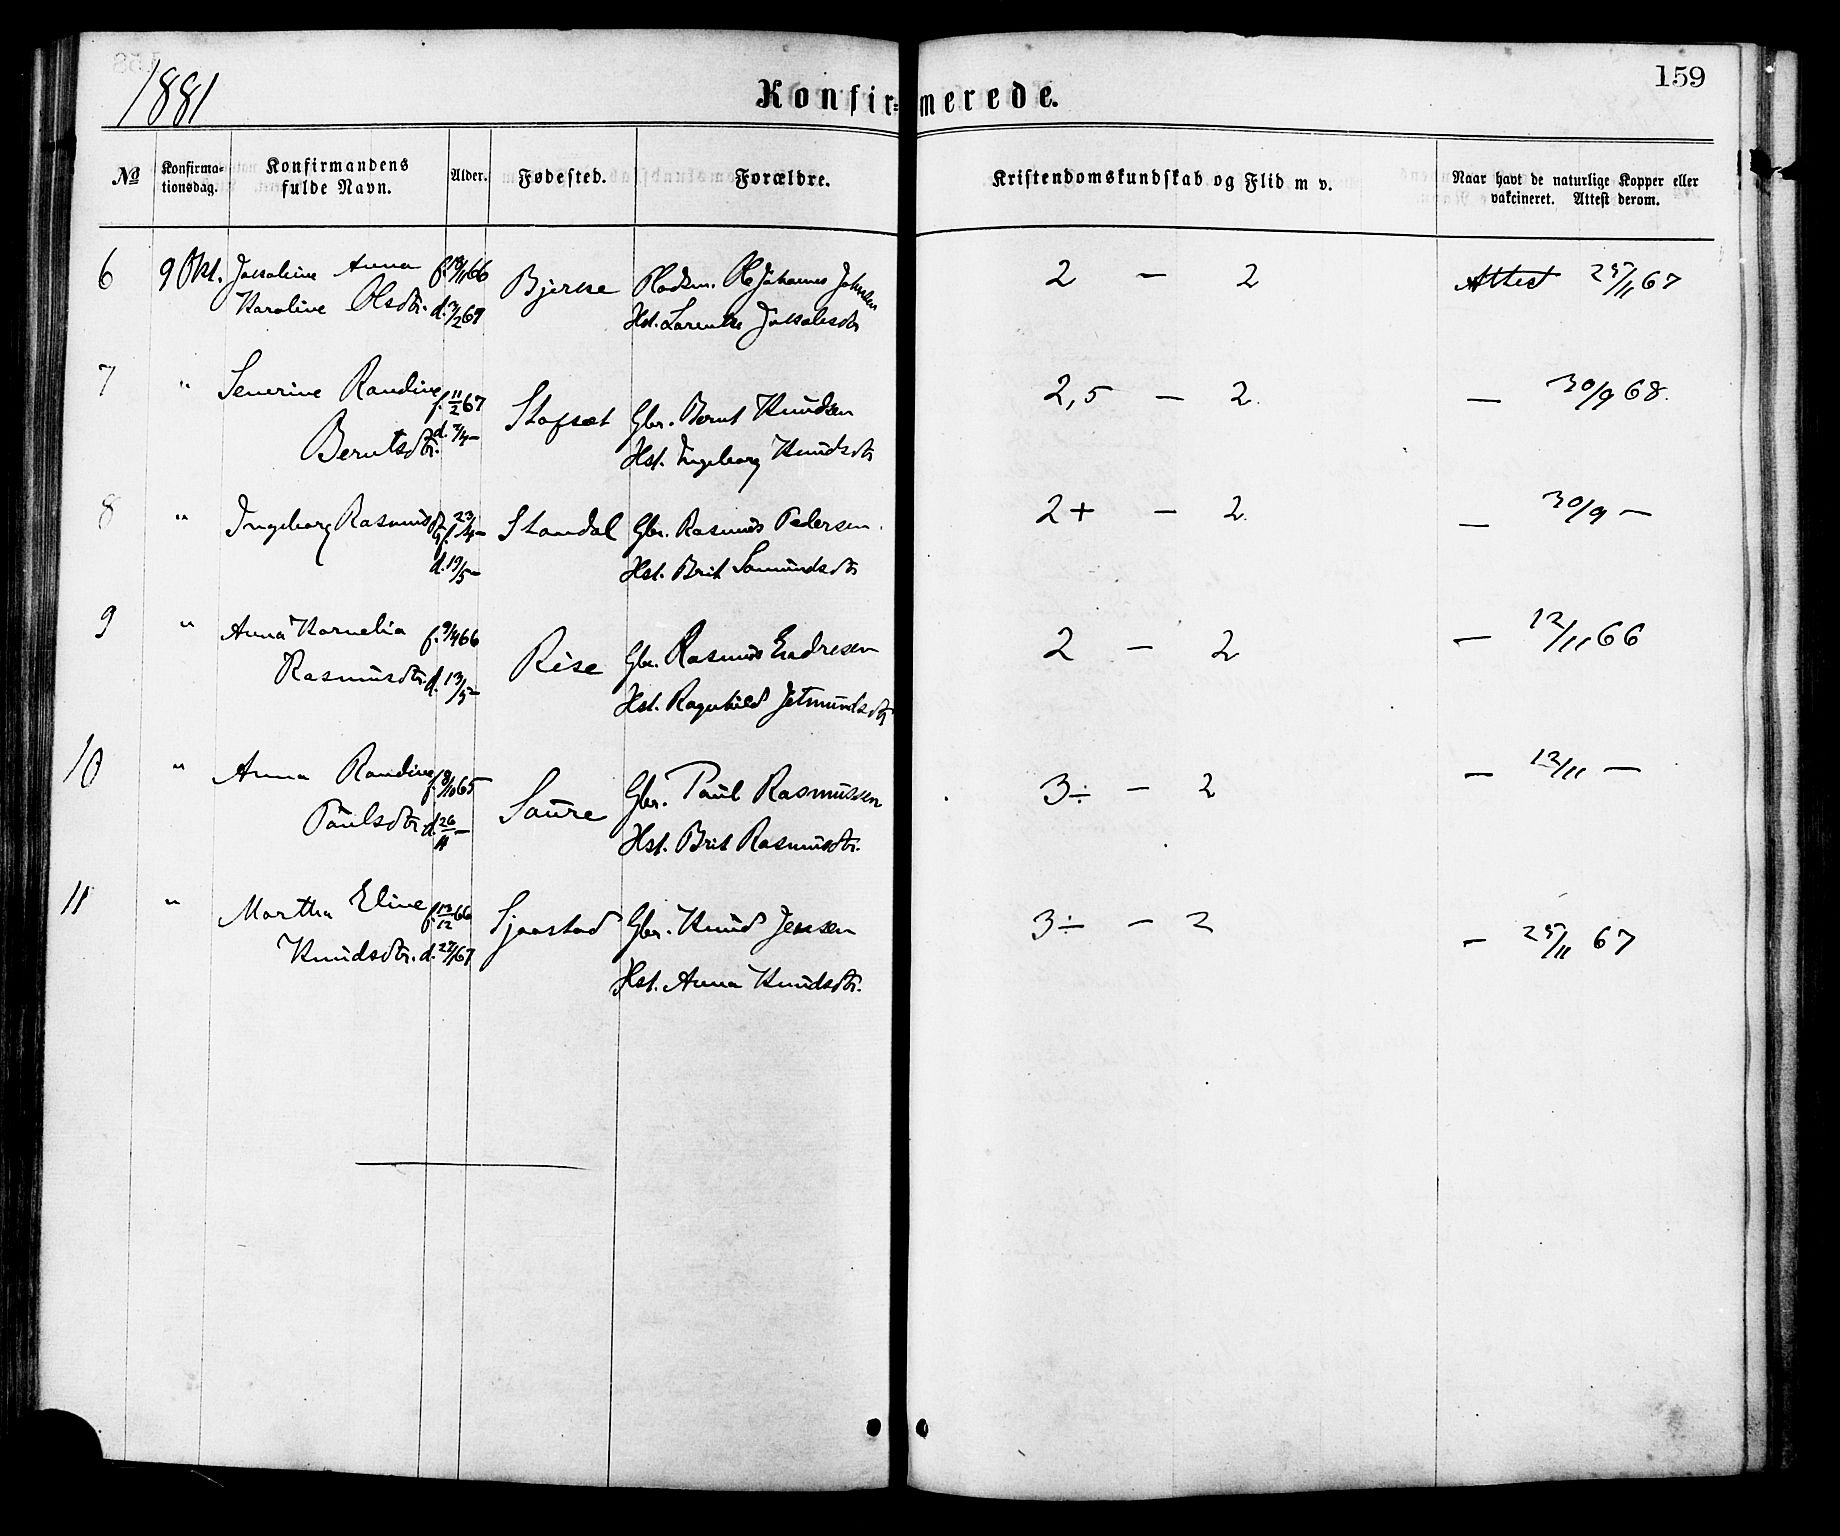 1881
Konfirmerede.
159
No
Konfirmationsdag.
Konfirmandens fulde Navn.
Alder.
Fødested.
Forældre.
Kristendomskundskab og Flid m v.
Naar havt de naturlige Kopper eller vakcineret. Attest derom.
6 9 Okt. Jakobine Anna f. 66 Bjerke Pladsm. Ole Johannes Johnsen 2 — 2 Attest 25/11 67
Karoline Olsdtr. d. 3/2 67 Hst. Larentse Jakobsdtr
7 " Severine Randine f. 11/2 67 Stafset Gbr. Bernt Knudsen 2,5 — 2. — 30/9 68.
Berntsdtr. d. 7/4 – Hst. Ingeborg Knudsdtr
8 " Ingeborg Rasmusdtr f. 23/4 – Standal Gbr. Rasmus Pedersen. 2+ — 2. — 30/9 —
d. 19/5 – Hst. Brit Samundsdtr
9 " Anna Kornelia f. 9/4 66 Rise Gbr. Rasmus Endresen 2 — 2 — 12/11 66
Rasmusdtr. d. 13/5 – Hst. Ragnhild Jetmundsdtr
10 " Anna Randine f. 8/10 65 Saure Gbr. Paul Rasmussen 3÷ — 2 — 12/11 —
Paulsdtr. d. 26/11 – Hst. Brit Rasmusdtr.
11 " Martha Eline f. 13/12 66 Sjaastad Gbr. Knud Jensen 3÷ — 2 — 25/11 67
Knudsdtr. d. 27/1 67 Hst. Anna Knudsdtr.